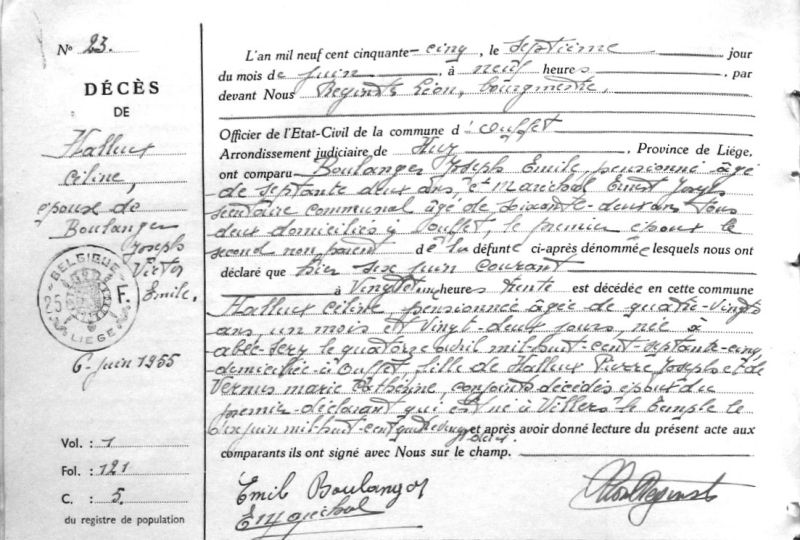 N° 23.
DÉCÈS
DE
Hallux
Céline,
épouse de
Boulanger
Joseph
Victor
Emile.
BELGIQUE
25 F.
LIEGE
6-juin 1955
Vol. : 1
Fol. : 121
C. : 5.
du registre de population
L'an mil neuf cent cinquante-cinq, le septième jour
du mois de juin, à neuf heures, par
devant Nous Reginster Léon, bourgmestre,
Officier de l'Etat-Civil de la commune d'Ouffet
Arrondissement judiciaire de Huy, Province de Liége,
ont comparu Boulanger Joseph Emile, pensionné âgé
de septante deux ans et Maréchal Ernest Joseph
secrétaire communal âgé de soixante-deux ans tous
deux domiciliés à Ouffet, le premier époux le
second non parent de la défunte ci-après dénommée lesquels nous ont
déclaré que hier six juin courant
à vingt et une heures trente est décédée en cette commune
Hallux Céline pensionnée âgée de quatre-vingts
ans, un mois et vingt-deux jours, née à
abée-Scry le quatorze avril mil huit-cent-septante-cinq,
domiciliée à Ouffet, fille de Hallux Pierre Joseph et de
marie Cathérine, conjoints décédés épouse du
premier-déclarant qui est né à Villers-le Temple le
six juin mil-huit-cent quatre vingt et après avoir donné lecture du présent acte aux
comparants ils ont signé avec Nous sur le champ.
Emil Boulanger
E Maréchal